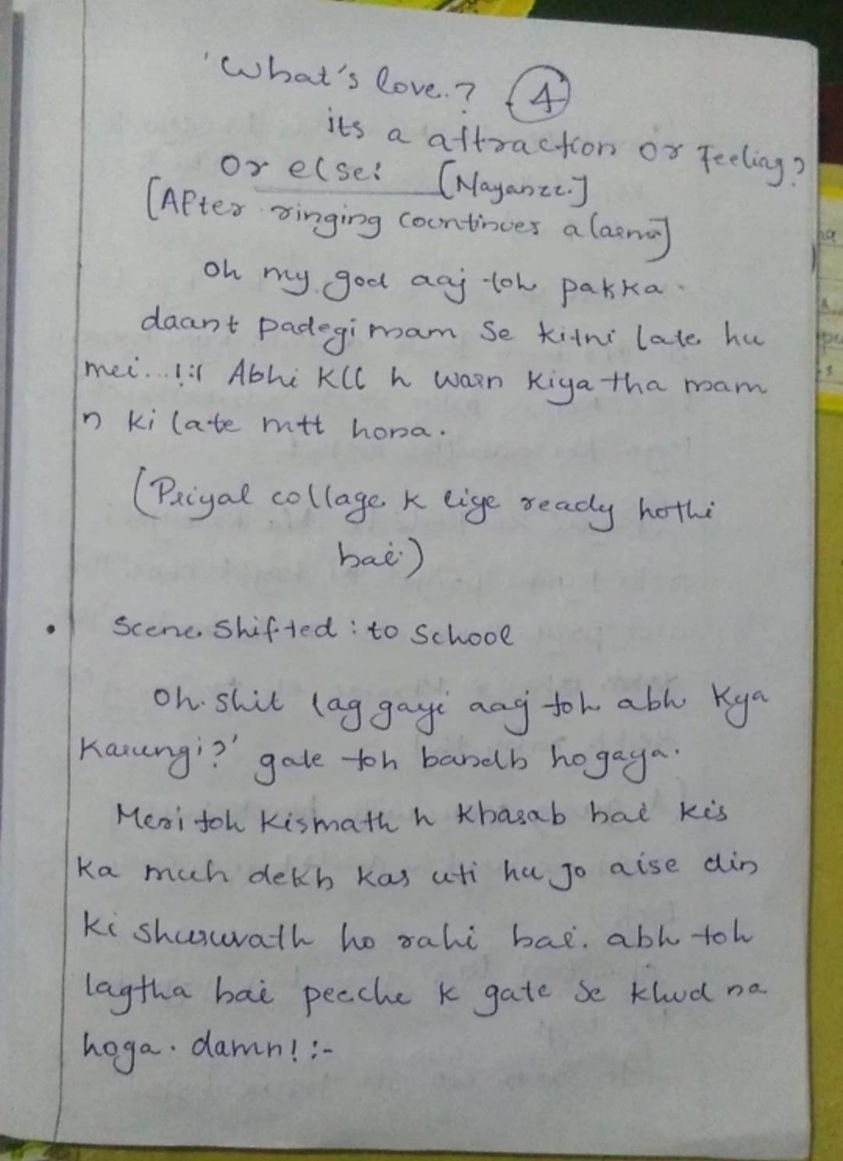 'What's love.? 4
its a attraction or Feeling?
Or else: [Nayanzz.]
[After ringing countinues alarm]
Oh my god aaj toh pakka.
daant padegi mam se kitni late hu
mei...!:( Abhi Kll h warn kiya tha mam
n ki late mtt hona.
(Priyal collage k liye ready hothi
hai.)
• Scene Shifted : to School
Oh. shit lag gayi aaj toh abh kya
Karungi?' gate toh bandh hogaya.
Meri toh kismath h kharab hai kis
ka muh dekh kar uti hu jo aise din
ki shuruvath ho rahi hai. abh toh
lagtha hai peeche k gate se khud na
hoga. damn! :-